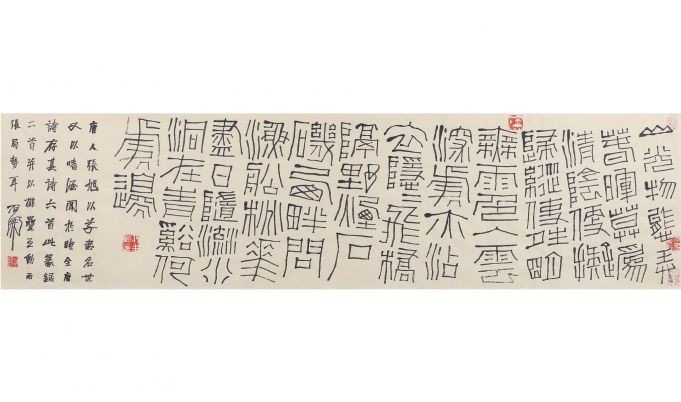 山光物態弄
春暉莫為
輕陰便擬
歸縱使晴明
無雨色入雲
深處亦沾
衣隱隱飛橋
隔野煙石
磯西畔問
漁船桃花
盡日隨流水
洞在青谿何
處邊
唐人張旭以草書名世
又以嗜酒聞於時全唐
詩存其詩六首此篆錄
二首并以排疊之勢而
張局勢耳